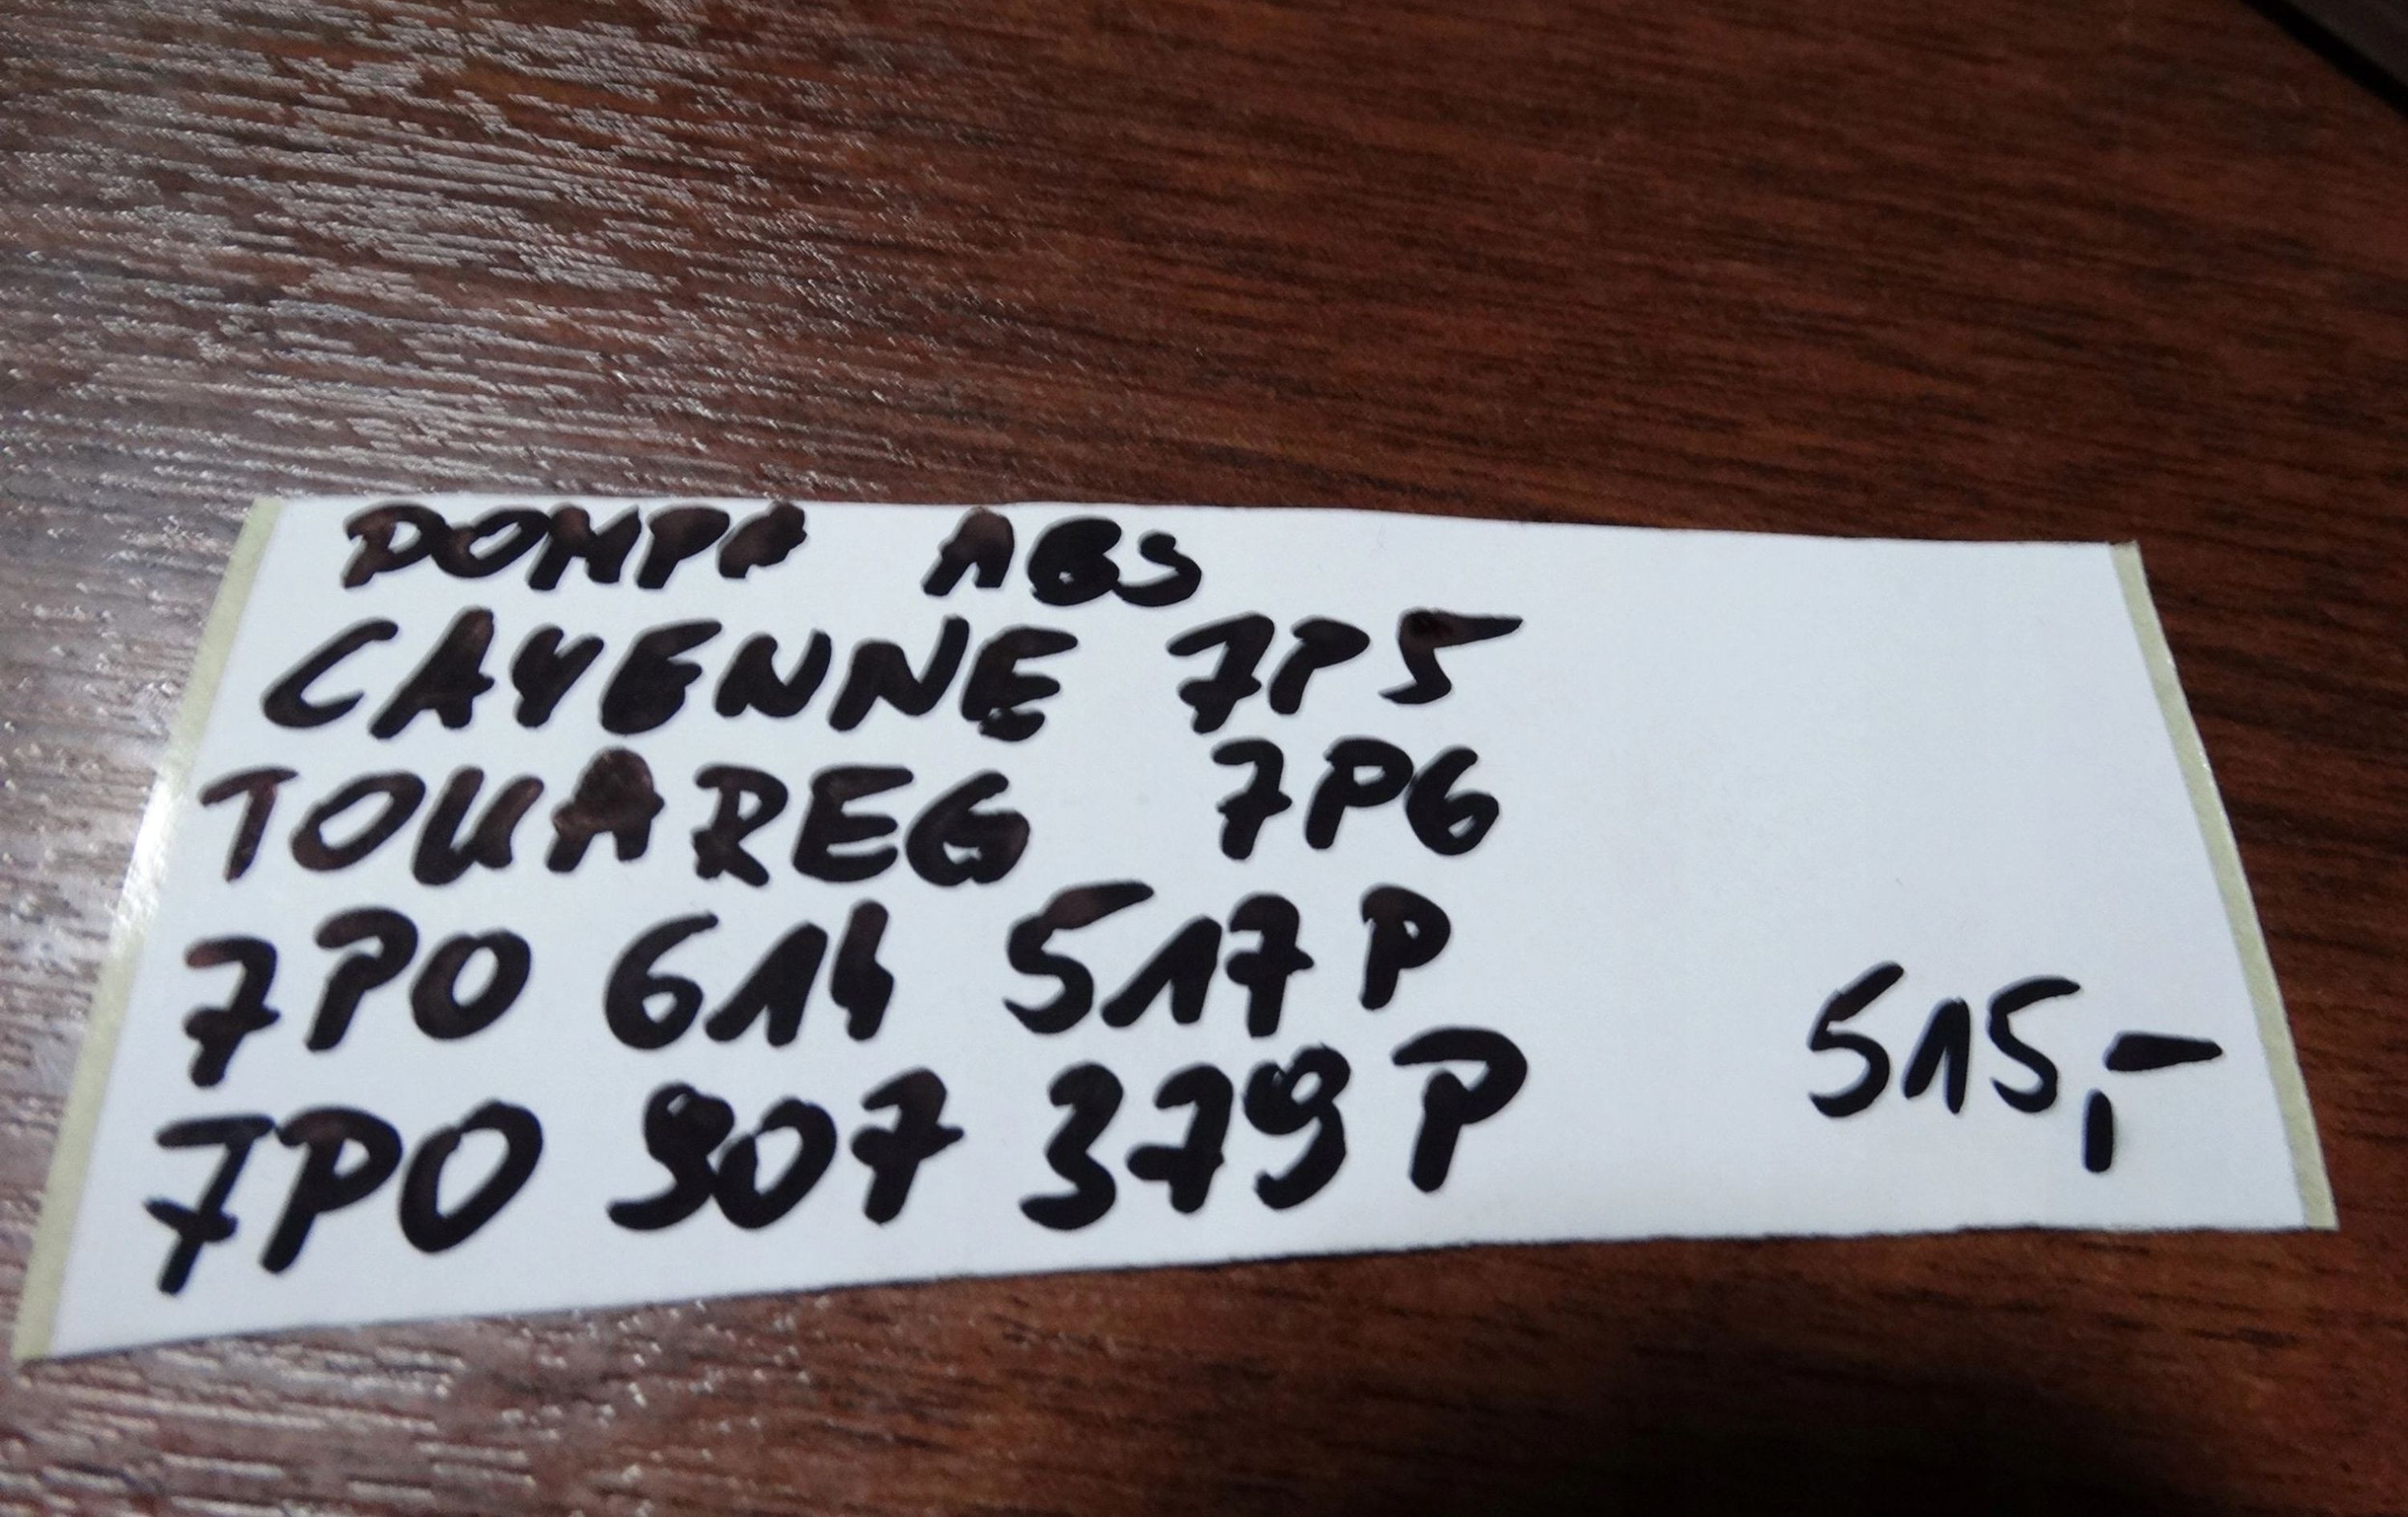 POMPA ABS
CAYENNE 7P5
TOUAREG 7P6
7PO 614 517 P
7PO 907 379 P
515,-